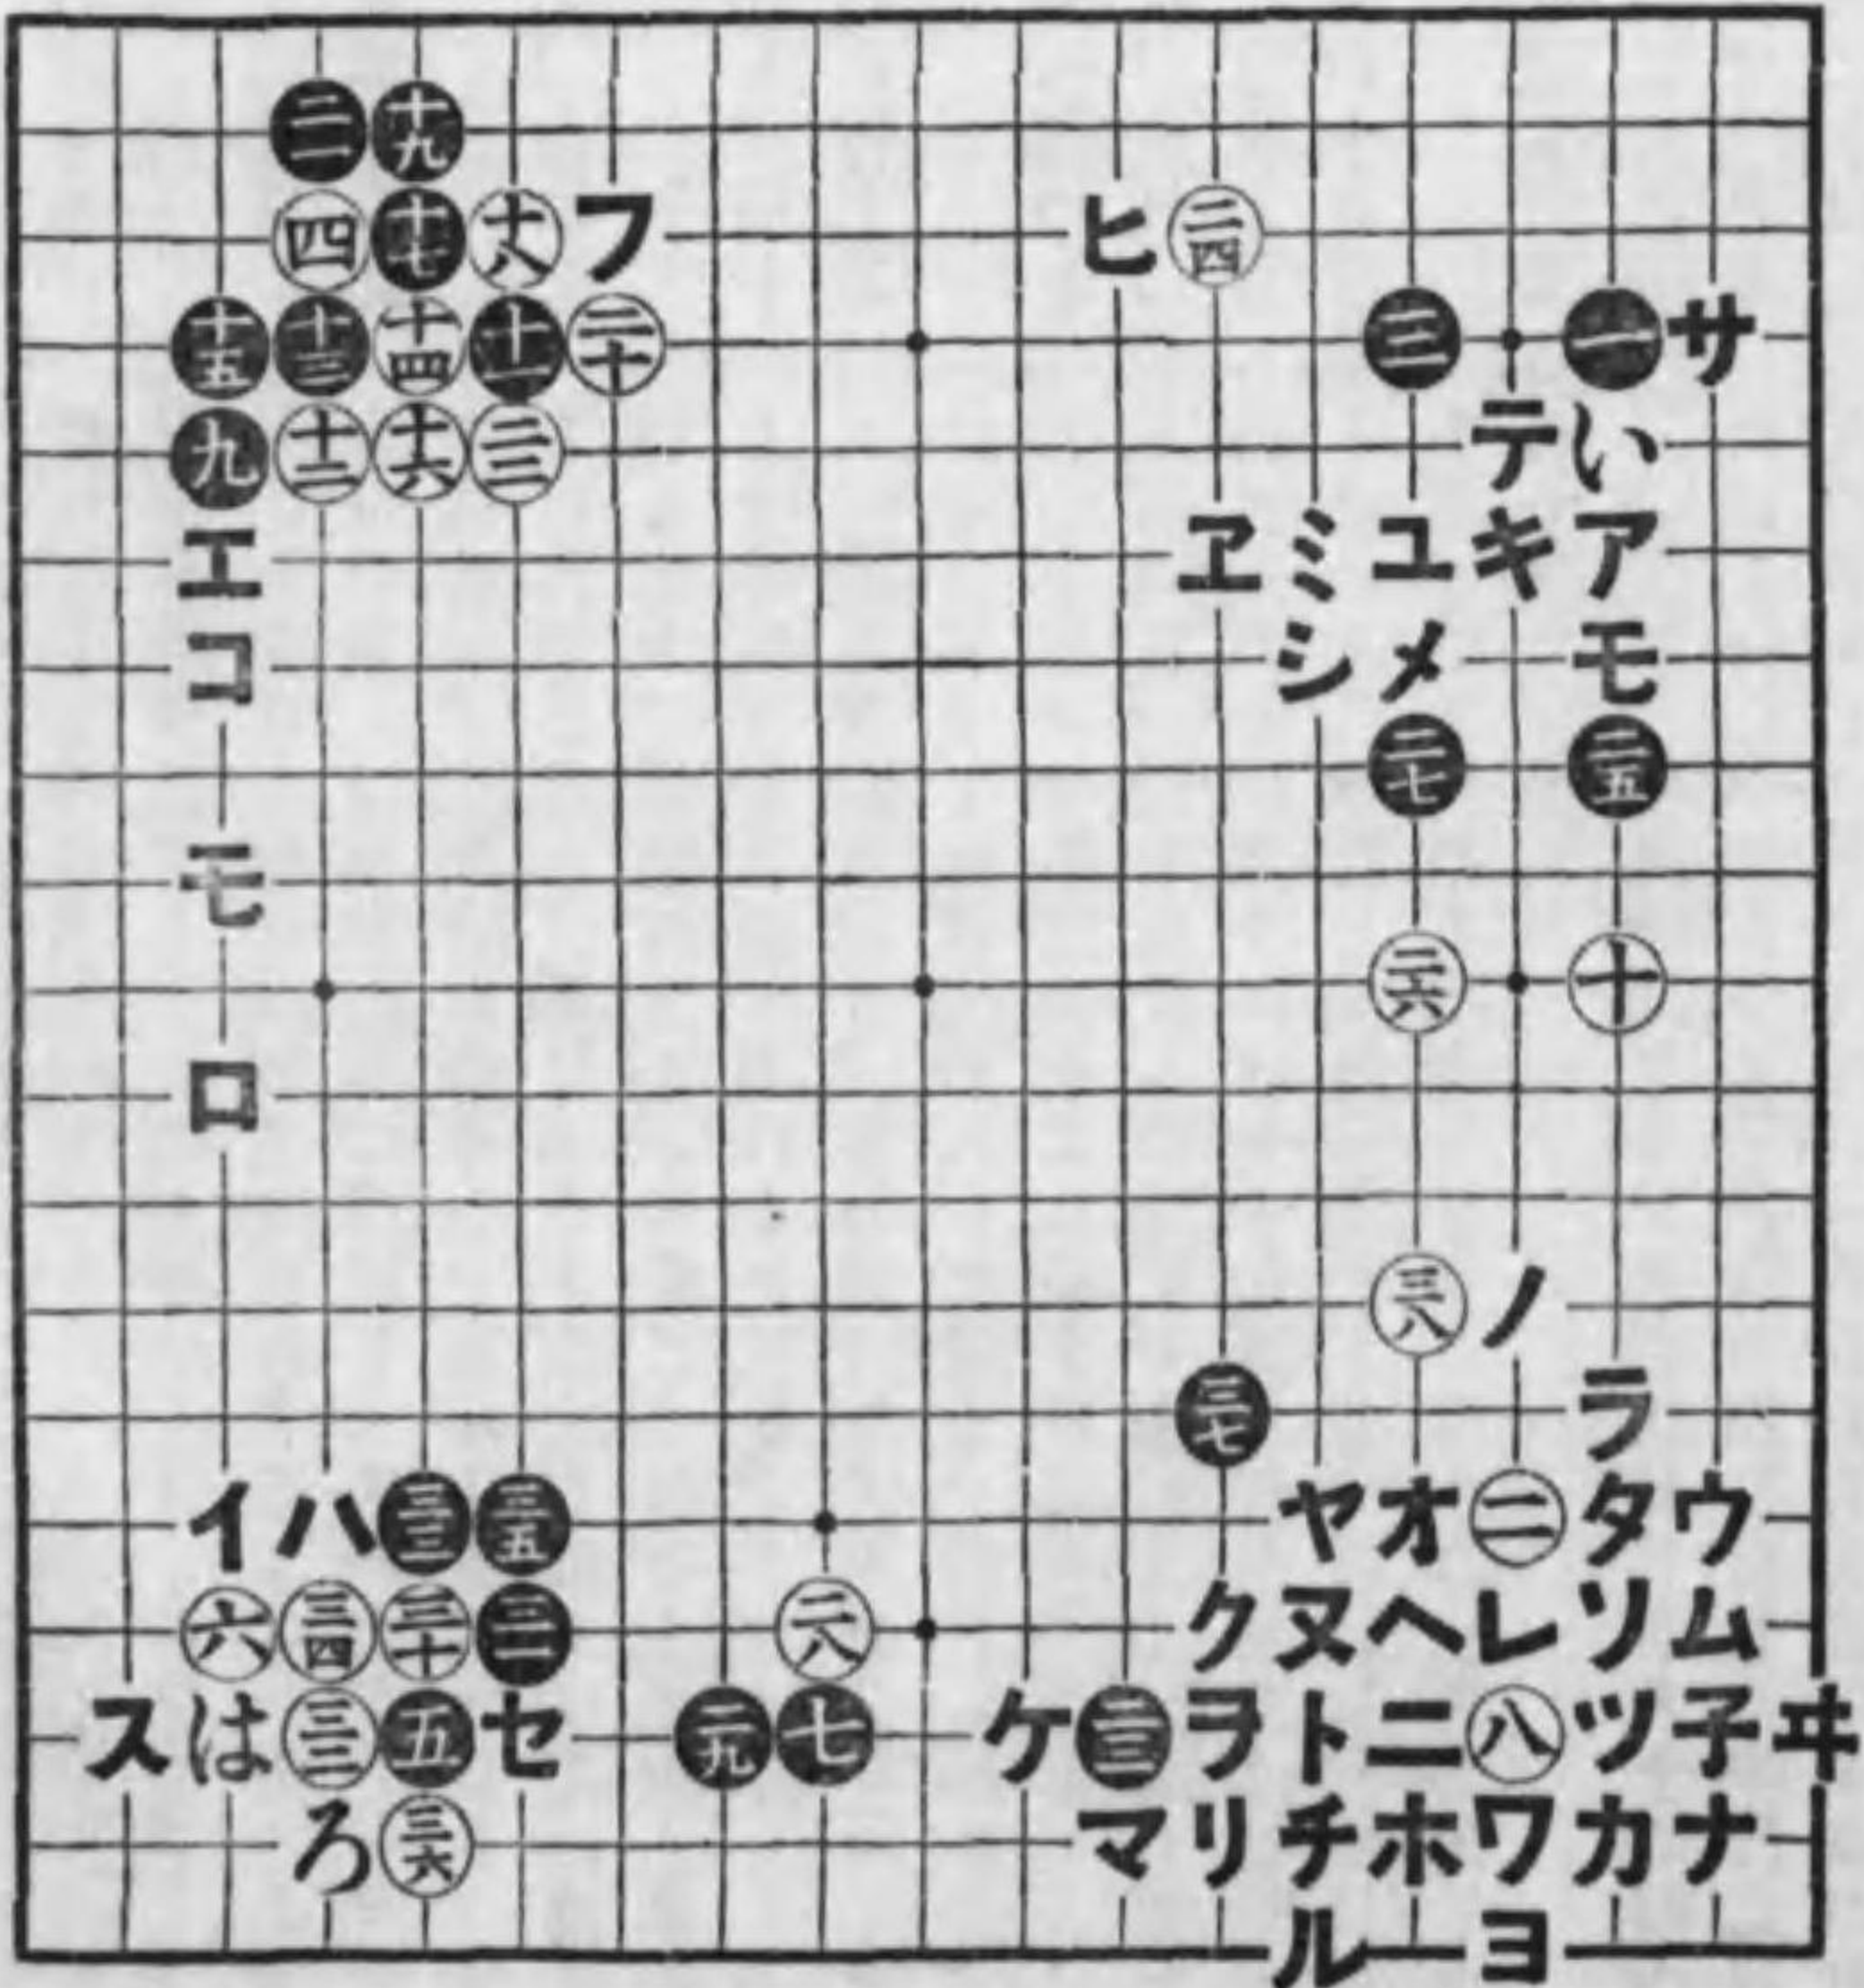 二一 十九
四 十七 十八 フ ヒ 二四
十五 十三 十四 十一 二十 三 一 サ
九 十二 十六 二二 テ い
エ ヱ ミ ユ キ ア
コ シ メ モ
二七 二五
モ
二六 十
ロ
三八 ノ
三七 ラ
イ ハ 三三 三五 ヤ オ 二 タ ウ
六 三四 三十 三一 二八 ク ヌ ヘ レ ソ ム
ス は 三二 五 セ 二九 七 ケ 二三 ヲ ト ニ 八 ツ 子 ヰ
ろ 三六 マ リ チ ホ ワ カ ナ
ル ヨ